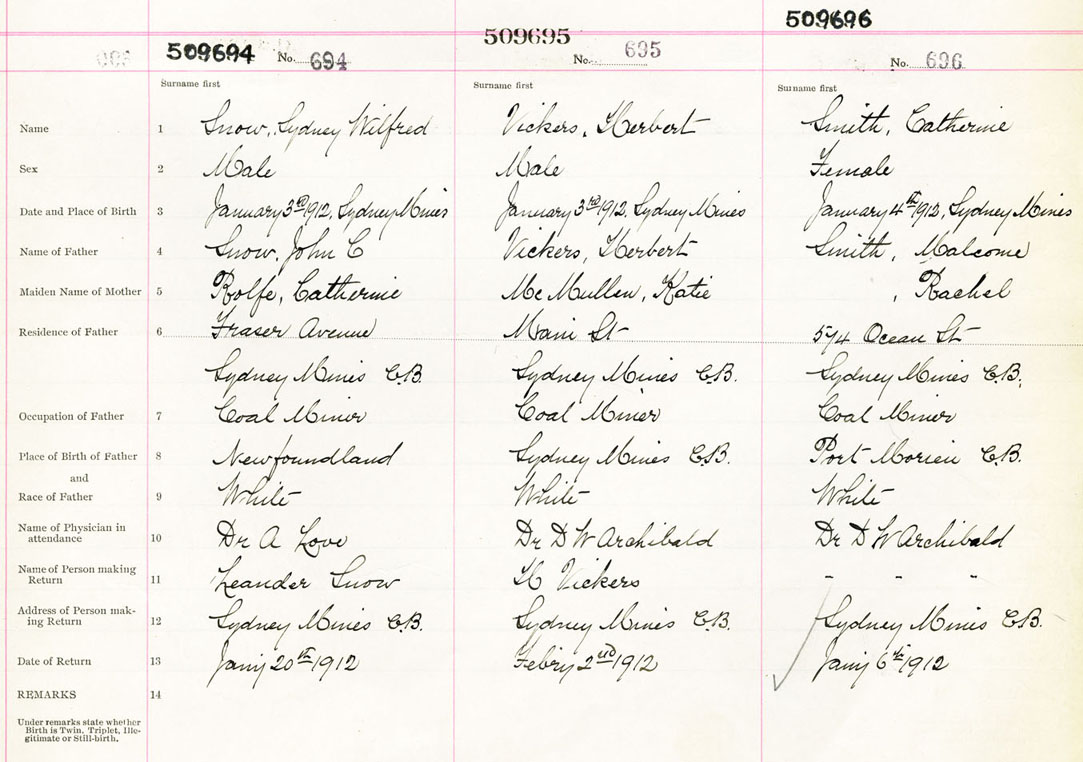 509694 No. 694 509695 No. 695 509696 No. 696
Surname first Surname first Surname first
Name 1 Snow, Sydney Wilfred Vickers, Herbert Smith, Catherine
Sex 2 Male Male Female
Date and Place of Birth 3 January 3rd 1912, Sydney Mines January 3rd 1912, Sydney Mines January 4th 1912, Sydney Mines
Name of Father 4 Snow, John C Vickers, Herbert Smith, Malcome
Maiden Name of Mother 5 Rolfe, Catherine McMullen, Katie , Rachel
Residence of Father 6 Fraser Avenue Main St 574 Ocean St
Sydney Mines C.B. Sydney Mines C.B. Sydney Mines C.B.
Occupation of Father 7 Coal Miner Coal Miner Coal Miner
Place of Birth of Father 8 Newfoundland Sydney Mines C.B. Port Morien C.B.
and
Race of Father 9 White White White
Name of Physician in
attendance 10 Dr A Love Dr D W Archibald Dr D W Archibald
Name of Person making
Return 11 Leander Snow H Vickers " " "
Address of Person mak-
ing Return 12 Sydney Mines C.B. Sydney Mines C.B. Sydney Mines C.B.
Date of Return 13 Jany 20th 1912 Febry 2nd 1912 Jany 6th 1912
REMARKS 14
Under remarks state whether
Birth is Twin, Triplet, Ille-
gitimate or Still-birth.